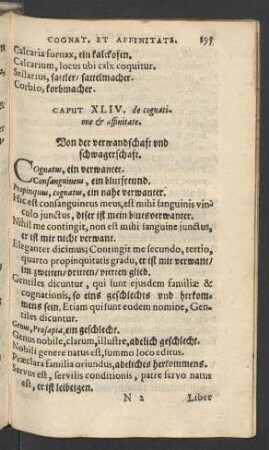 COGNAT. ET AFFINITATE. 195
Calcaria fornax, ein kalckofen.
Calcarium, locus ubi calx coquitur.
Sellarius, sattler/ sattelmacher.
Corbio, korbmacher.
CAPUT XLIV. de cognati-
one & affinitate.
Von der verwandschaft vnd
schwagerschaft.
Cognatus, ein verwanter.
Consanguineus, ein blutfreund.
Propinquus, cognatus, ein nahe verwanter.
Hic est consanguineus meus, est mihi sanguinis vin-
culo junctus, diser ist mein blutsverwanter.
Nihil me contingit, non est mihi sanguine junctus,
er ist mir nicht verwant.
Eleganter dicimus; Contingit me secundo, tertio,
quarto propinquitatis gradu, er ist mir verwant/
im zweiten/ dritten/ vierten glied.
Gentiles dicuntur, qui sunt ejusdem familiæ &
cognationis, so eins geschlechts vnd herkom-
mens sein. Etiam qui sunt eodem nomine, Gen-
tiles dicuntur.
Genus, Prosapia, ein geschlecht.
Genus nobile, clarum, illustre, adelich geschlecht.
Nobili genere natus est, summo loco editus.
Præclara familia oriundus, adeliches herkommens.
Servus est, servilis conditionis, patre servo natus
est, er ist leibeigen.
N 2 Liber